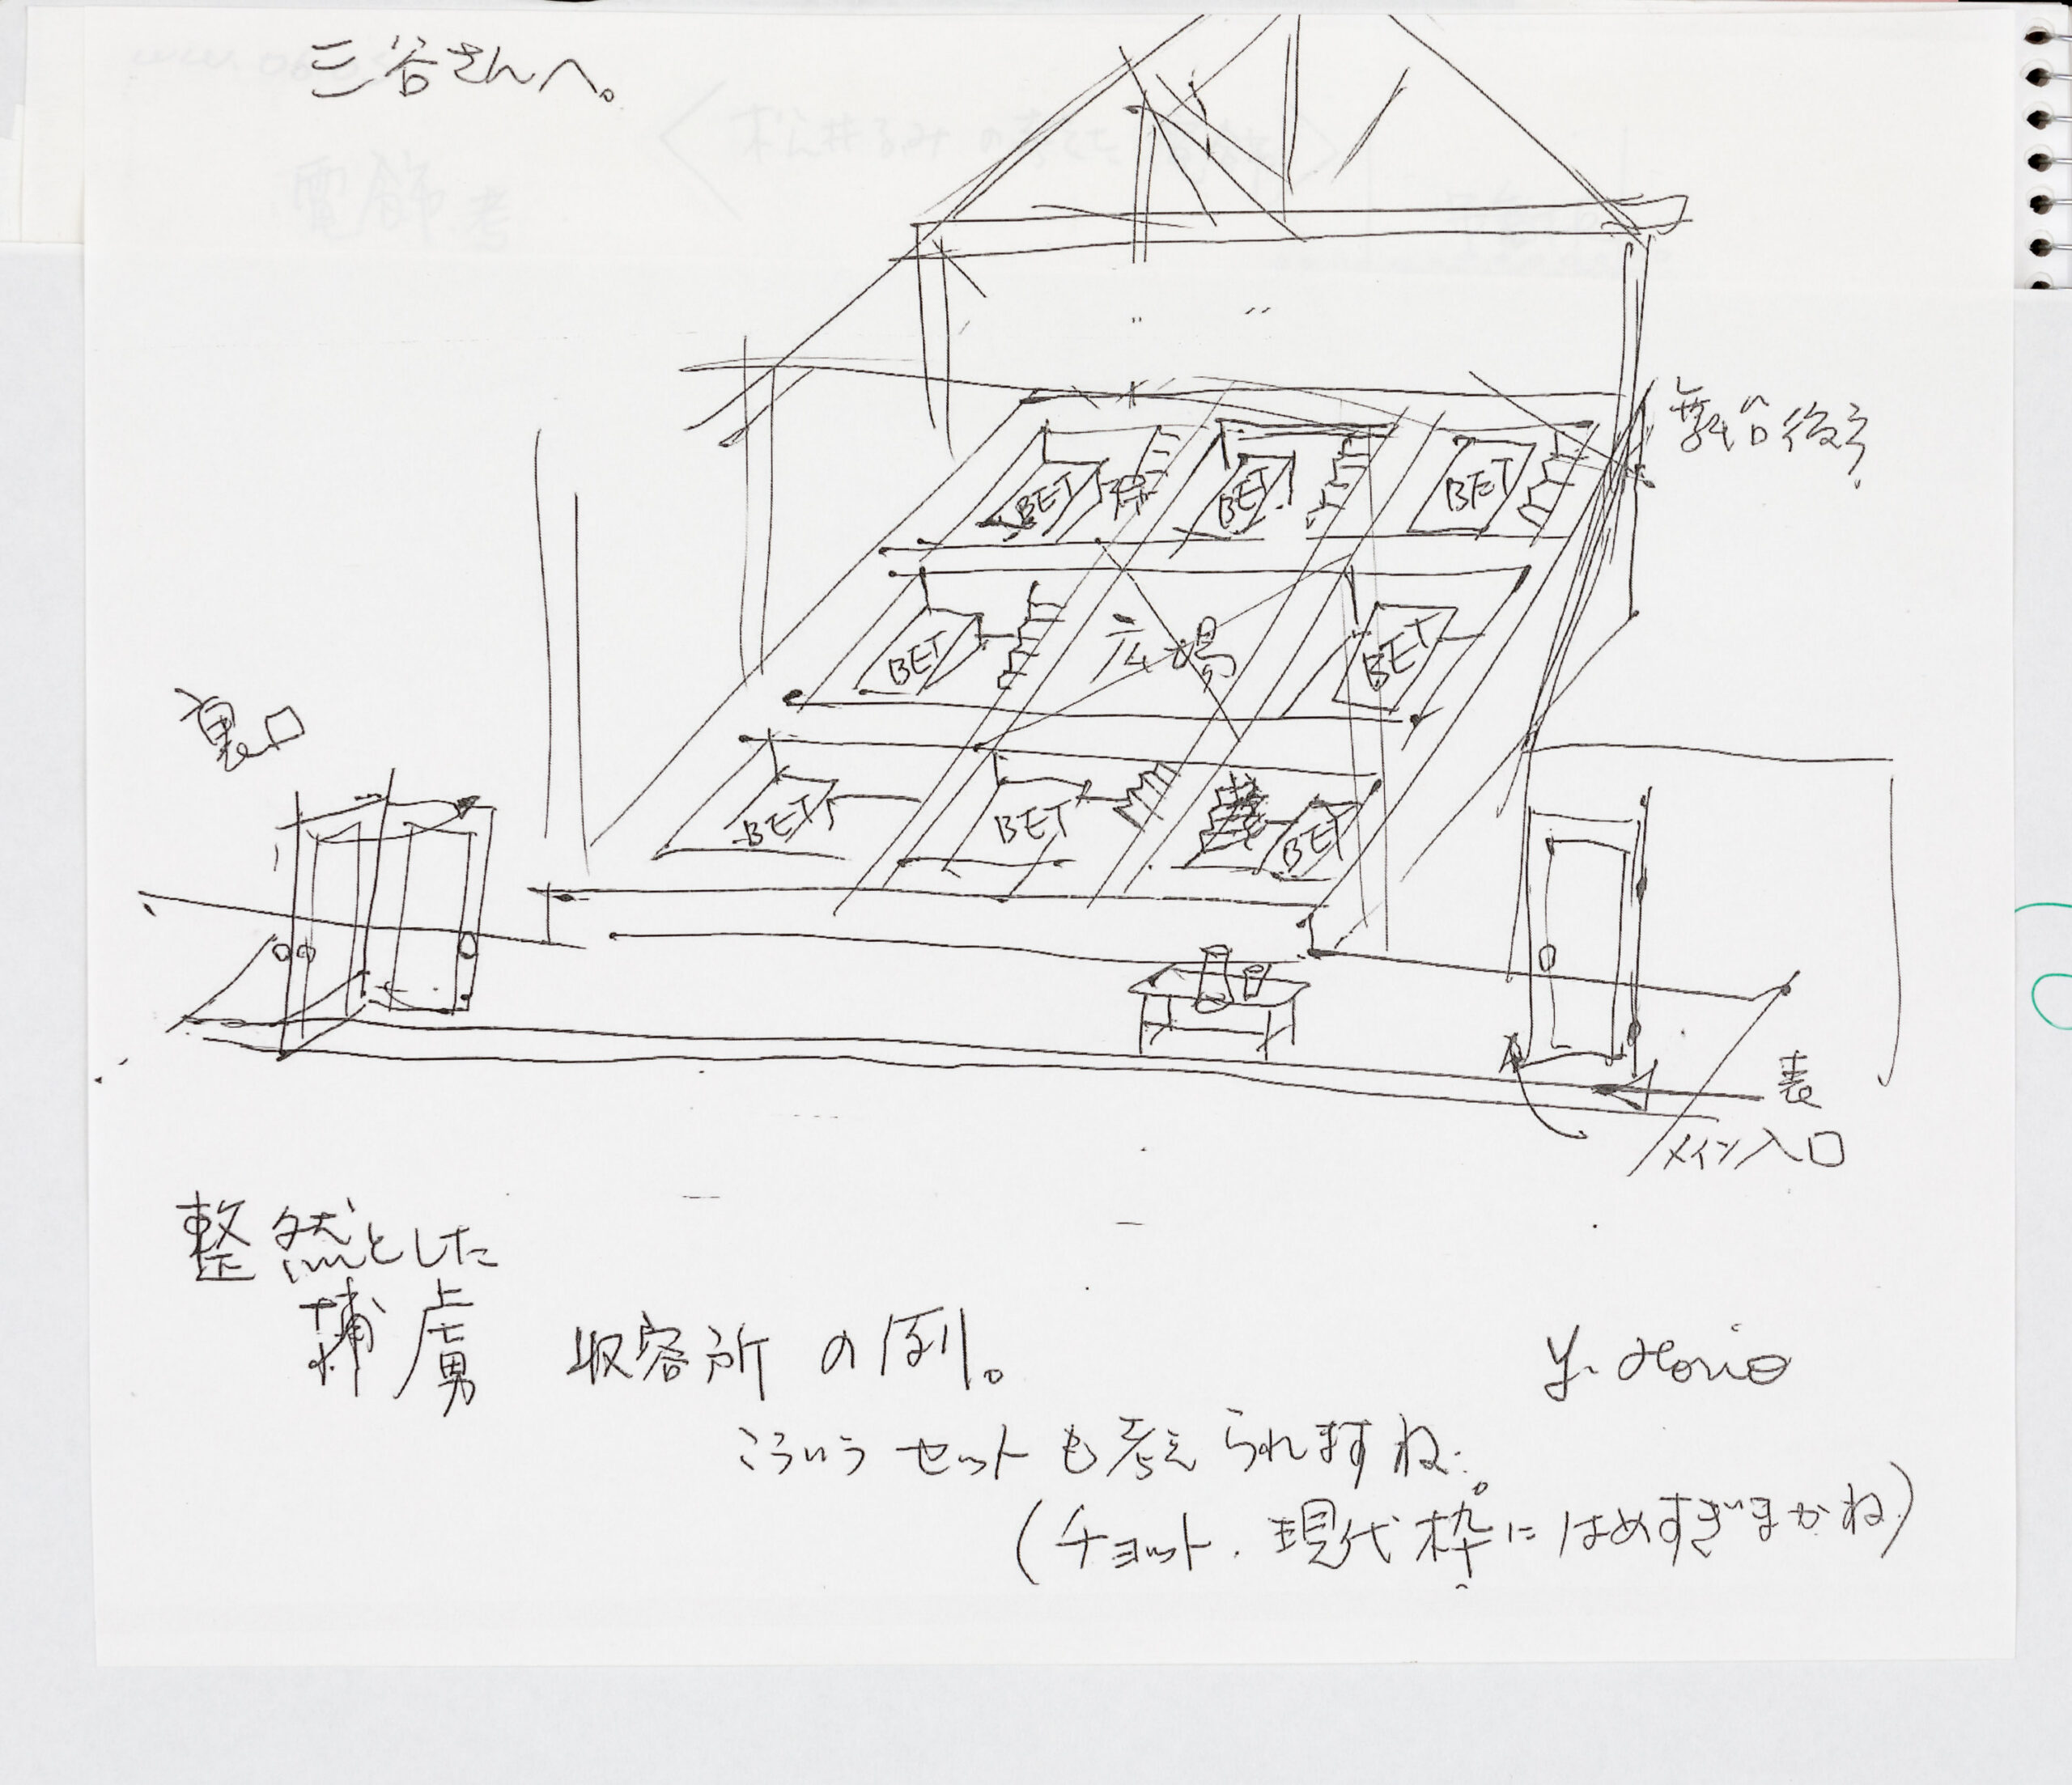 三谷さんへ。
舞台後ろ
BET
BET
BET
BET
広場
BET
BET
BET
BET
裏口
表
メイン入口
整然とした
捕虜 収容所 の例。
Y. Horio
こういう セット も 考え られます ね。
(チョット. 現代 枠に はめすぎまかね)